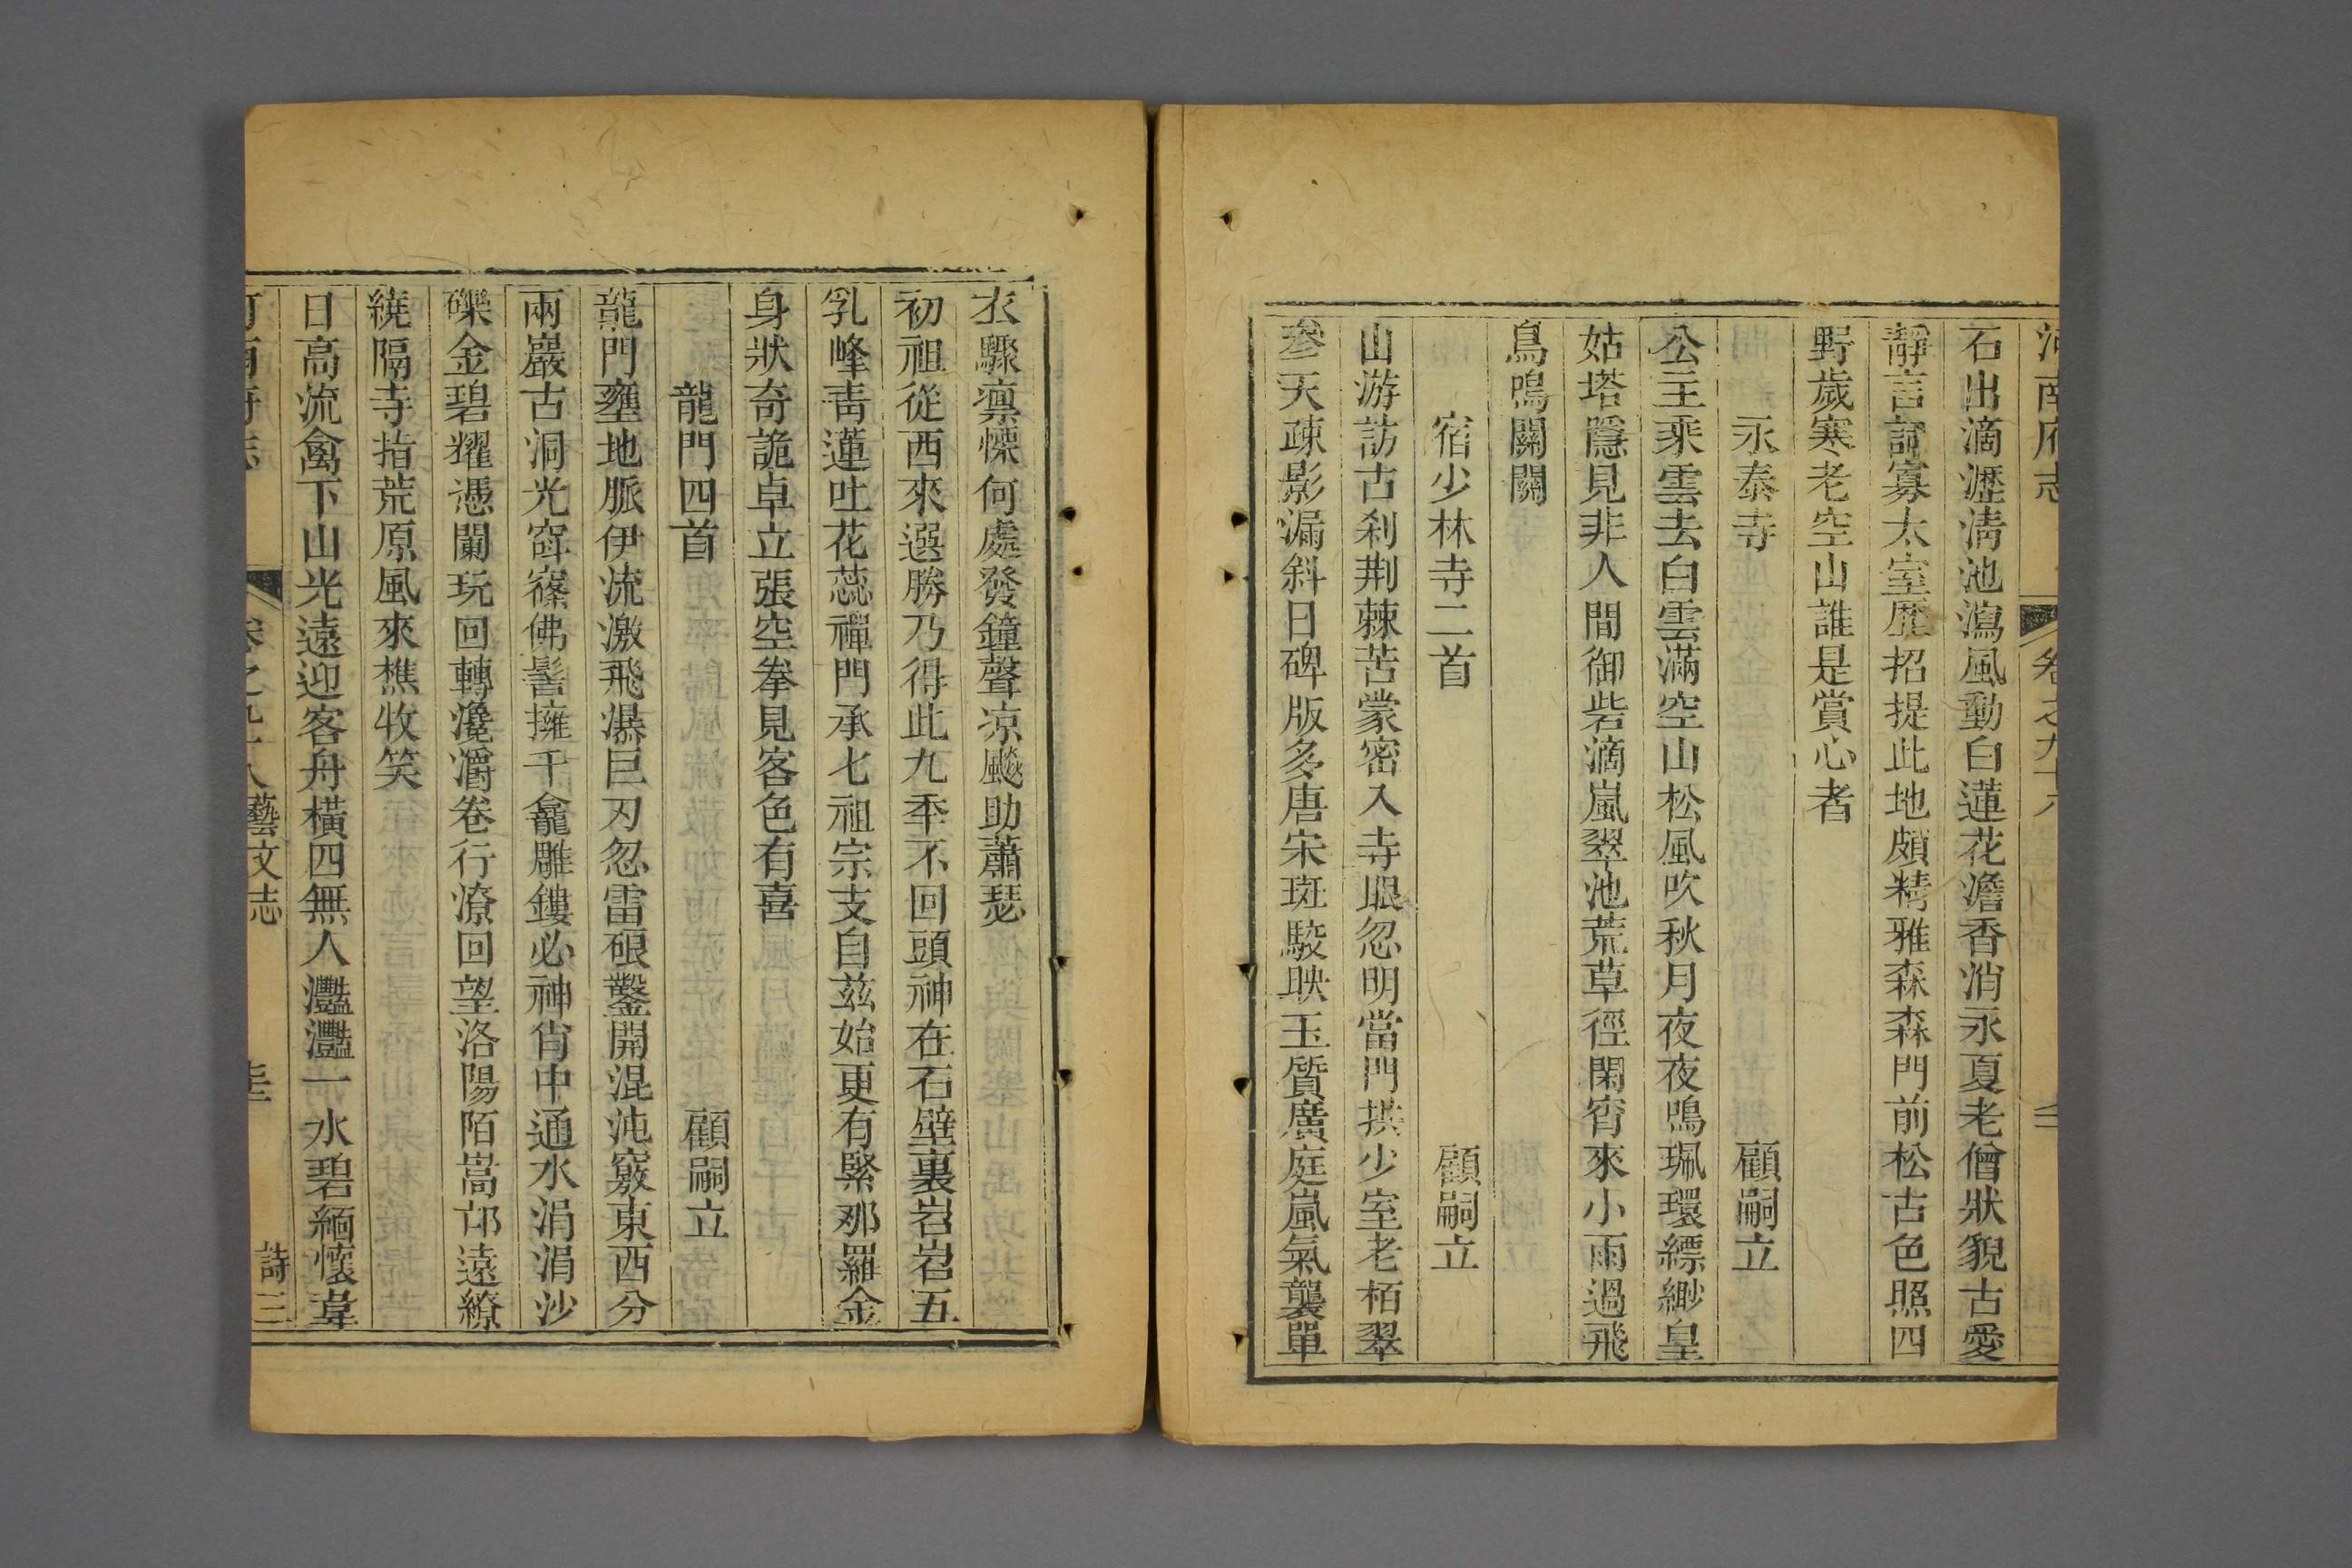 河南府志 卷之九十八
石出滴瀝淸池瀉風動白蓮花澹香消永夏老僧狀貌古愛
靜言詞寡太室歷招提此地頗精雅森森門前松古色照四
野歲寒老空山誰是賞心者
永泰寺 顧嗣立
公主乘雲去白雲滿空山松風吹秋月夜夜鳴珮環縹緲皇
姑塔隱見非人間御砦滴嵐翠池荒草徑閑宵來小雨過飛
鳥鳴關關
宿少林寺二首 顧嗣立
山游訪古刹荆棘苦蒙密入寺眼忽明當門拱少室老栢翠
參天疎影漏斜日碑版多唐宋斑駁映玉質廣庭嵐氣襲單
衣驟凛慄何處發鐘聲凉飈助蕭瑟
初祖從西來選勝乃得此九年不回頭神在石壁裏岧岧五
乳峰靑蓮吐花蕊禪門承七祖宗支自玆始更有緊那羅金
身狀奇詭卓立張空拳見客色有喜
龍門四首 顧嗣立
龍門壅地脈伊流激飛瀑巨刃忽雷硠鑿開混沌竅東西分
兩巖古洞光窅篠佛髻擁千龕雕鏤必神肖中通水涓涓沙
礫金碧耀憑闌玩回轉灔灂卷行潦回望洛陽陌嵩邙遠繚
繞隔寺指荒原風來樵牧笑
日高流禽下山光遠迎客舟橫四無人灔灔一水碧緬懷韋
河南府志 卷之九十八藝文志 詩三